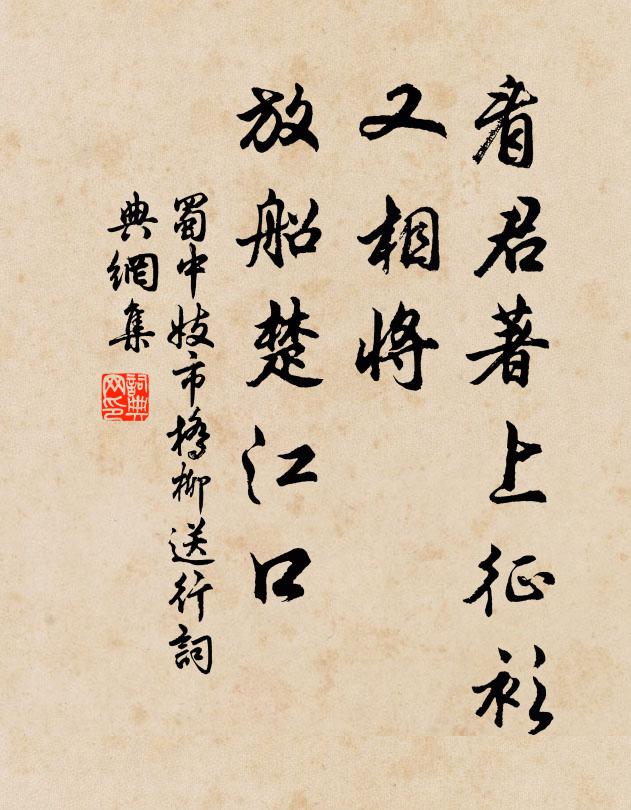 看君著上征衫
又相將
放船楚江口
蜀中妓市橋柳送行詞
典網集
詞典
网印